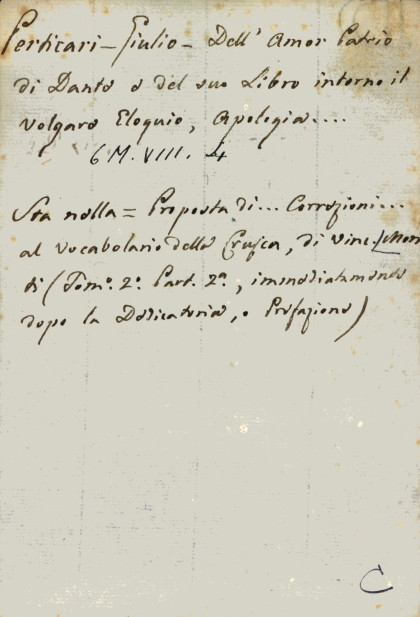 Perticari - Giulio - Dell' Amor Patrio
di Dante e del suo Libro intorno il
volgare Eloquio, Apologia....
6 M. VIII. 4
Sta nella = Proposta di... Correzioni...
al vocabolario della Crusca, di Vinc. Mon
ti (Tomo. 2º. Part. 2ª, immediatamente
dopo la Dedicatoria, o Prefazione)
C